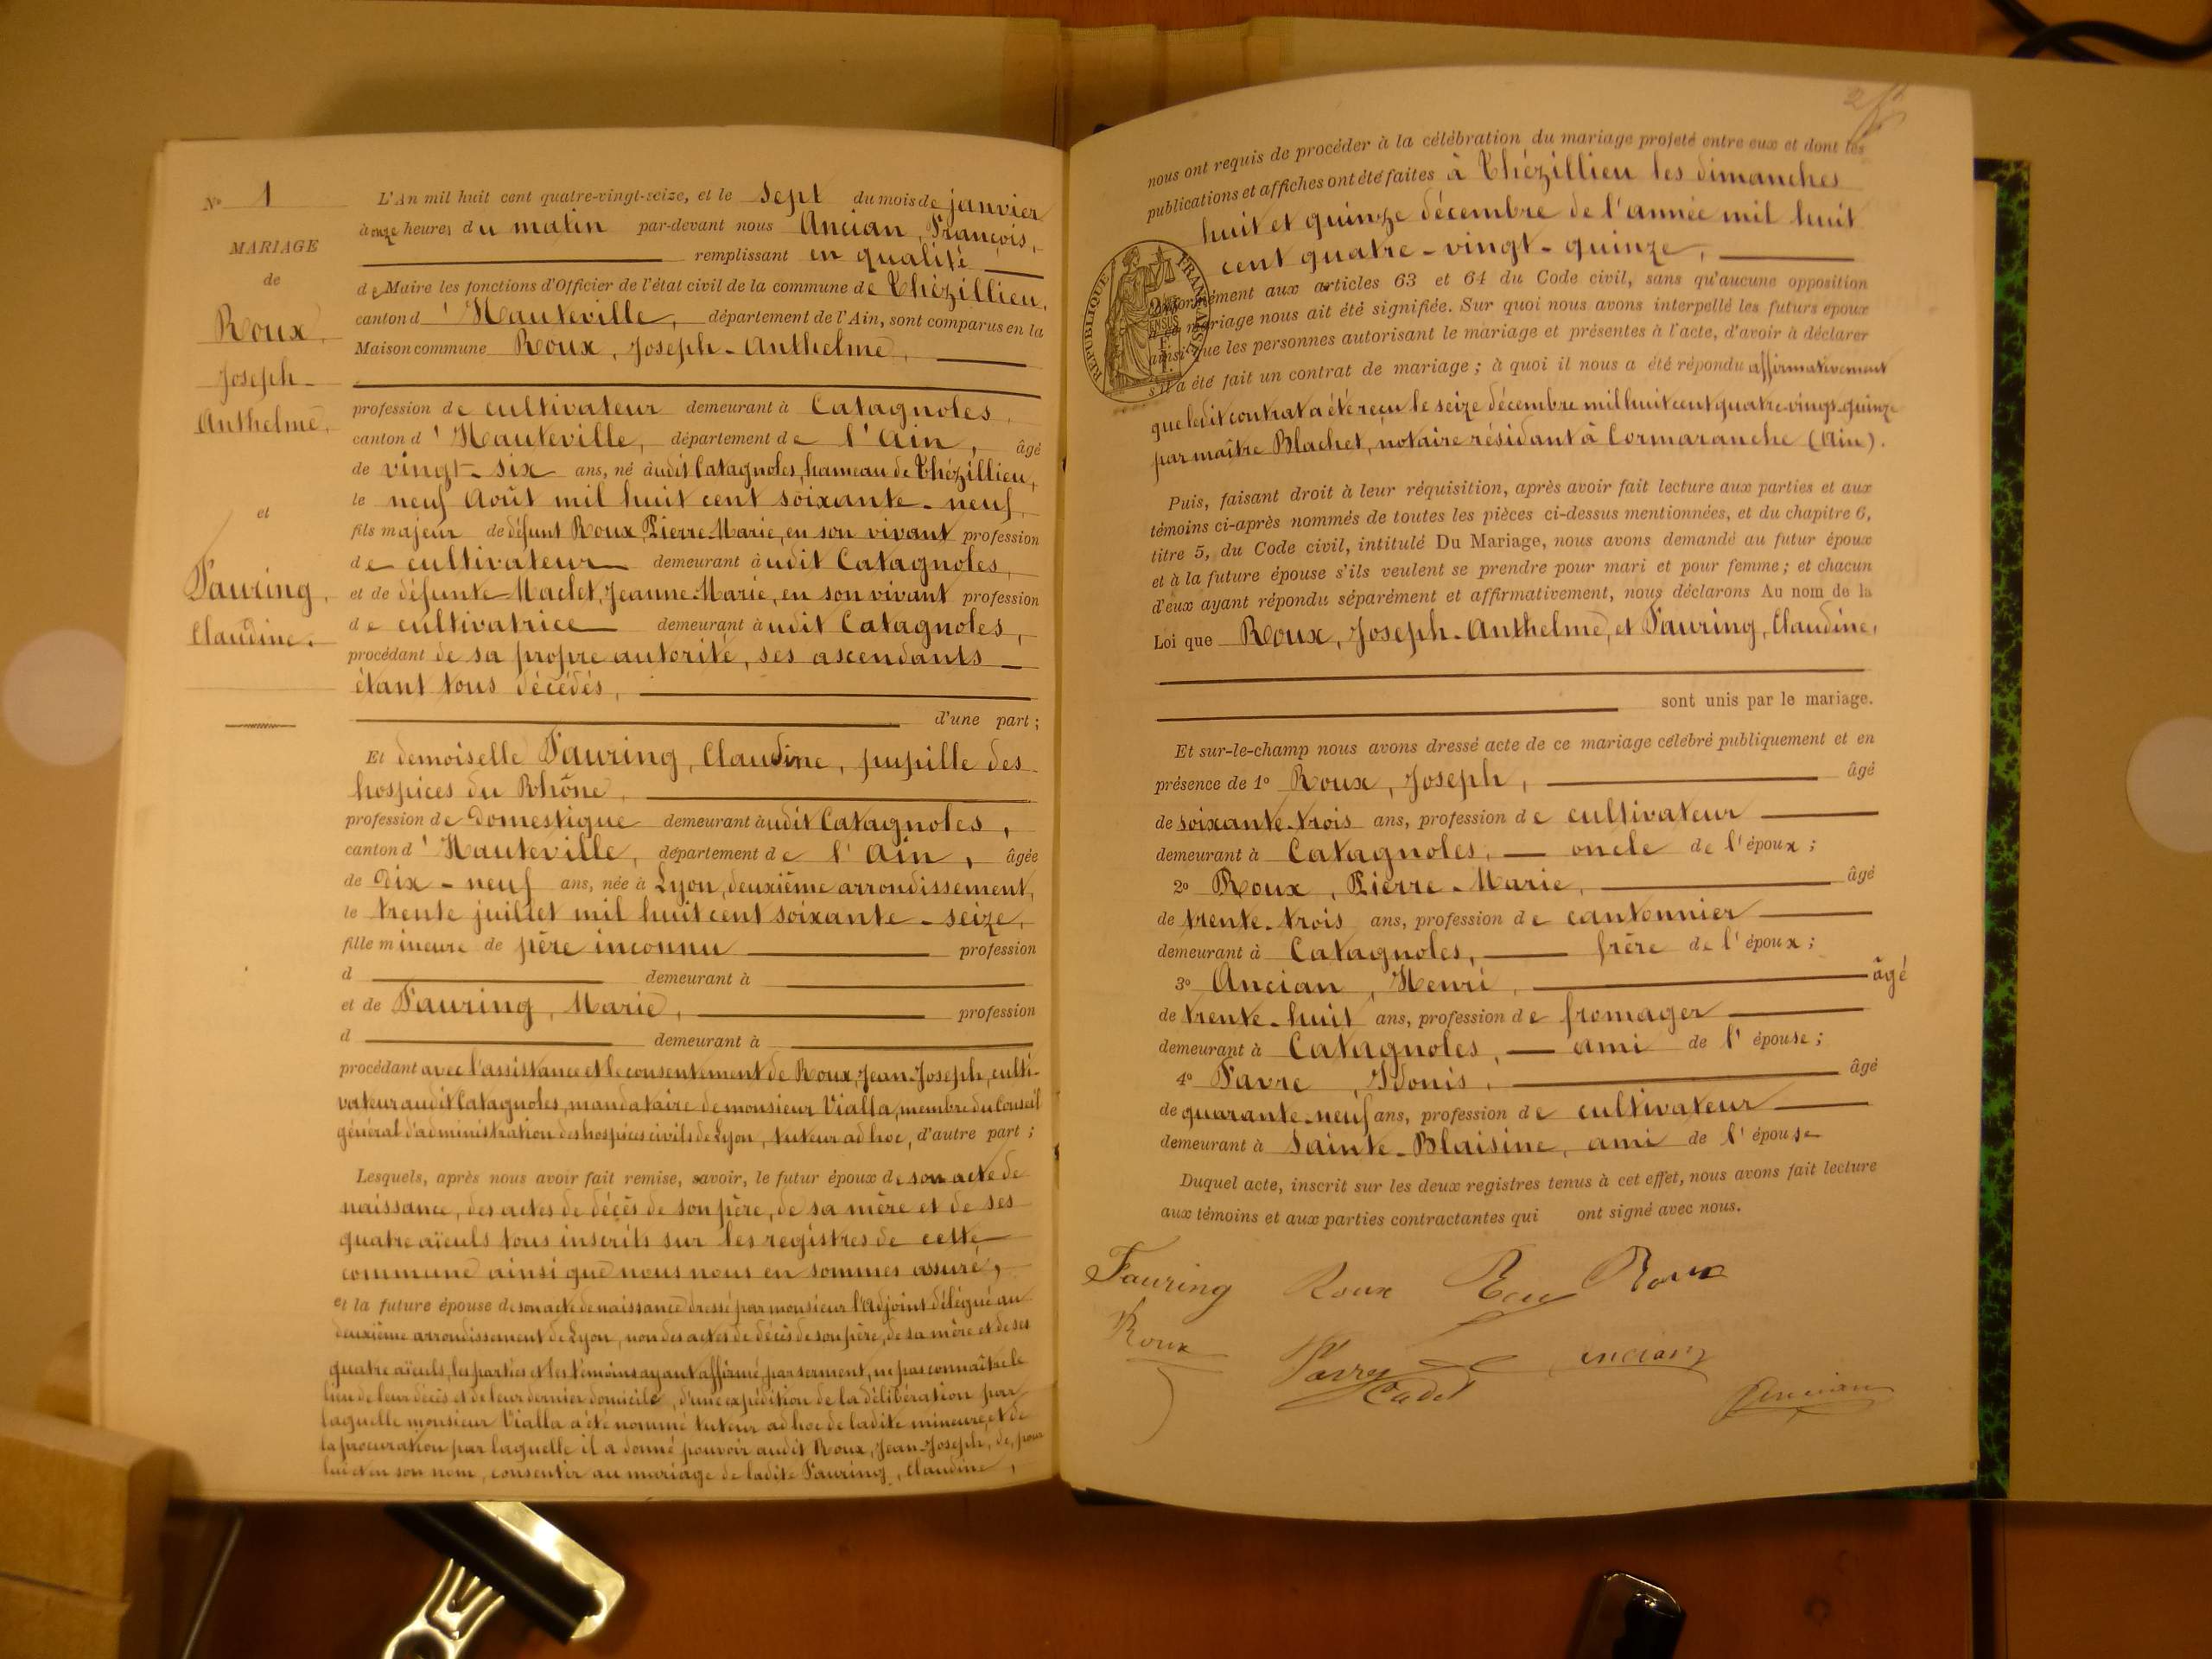 N° 1
MARIAGE
de
Roux,
Joseph-
Anthelme,
et
Fauring,
Claudine.
L'An mil huit cent quatre-vingt-seize, et le sept du mois de janvier
à onze heures du matin par-devant nous Ancian, François,
remplissant en qualité
de Maire les fonctions d'Officier de l'état civil de la commune de Thézillieu,
canton d'Hauteville, département de l'Ain, sont comparus en la
Maison commune Roux, Joseph-Anthelme,
profession de cultivateur demeurant à Catagnoles,
canton d'Hauteville, département de l'Ain, âgé
de vingt-six ans, né audit Catagnoles, hameau de Thézillieu,
le neuf Août mil huit cent soixante-neuf,
fils majeur de défunt Roux, Pierre-Marie, en son vivant profession
de cultivateur demeurant audit Catagnoles,
et de défunte Maclet, Jeanne-Marie, en son vivant profession
de cultivatrice demeurant audit Catagnoles,
procédant de sa propre autorité, ses ascendants
étant tous décédés,
d'une part ;
Et demoiselle Fauring, Claudine, pupille des
hospices du Rhône,
profession de Domestique demeurant audit Catagnoles,
canton d'Hauteville, département de l'Ain, âgée
de Dix-neuf ans, née à Lyon, deuxième arrondissement,
le trente juillet mil huit cent soixante-seize,
fille mineure de père inconnu profession
d demeurant à
et de Fauring, Marie, profession
d demeurant à
procédant avec l'assistance et le consentement de Roux, Jean-Joseph, culti-
vateur audit Catagnoles, mandataire de monsieur Vialla, membre du Conseil
général d'administration des hospices civils de Lyon, tuteur ad hoc, d'autre part ;
Lesquels, après nous avoir fait remise, savoir, le futur époux de son acte de
naissance, des actes de décès de son père, de sa mère et de ses
quatre aïeuls tous inscrits sur les registres de cette
commune ainsi que nous nous en sommes assuré,
et la future épouse de son acte de naissance dressé par monsieur l'Adjoint délégué au
deuxième arrondissement de Lyon, non des actes de décès de son père, de sa mère et de ses
quatre aïeuls, les parties et les témoins ayant affirmé par serment, ne pas connaître le
lieu de leur décès et de leur dernier domicile, d'une expédition de la délibération par
laquelle monsieur Vialla a été nommé tuteur ad hoc de ladite mineure, et de
la procuration par laquelle il a donné pouvoir audit Roux, Jean-Joseph, de, pour
lui et en son nom, consentir au mariage de ladite Fauring, Claudine,
nous ont requis de procéder à la célébration du mariage projeté entre eux et dont les
publications et affiches ont été faites à Thézillieu les dimanches
huit et quinze décembre de l'année mil huit
cent quatre-vingt-quinze,
RÉPUBLIQUE FRANÇAISE
Conformément aux articles 63 et 64 du Code civil, sans qu'aucune opposition
à ce mariage nous ait été signifiée. Sur quoi nous avons interpellé les futurs époux
ainsi que les personnes autorisant le mariage et présentes à l'acte, d'avoir à déclarer
s'il a été fait un contrat de mariage ; à quoi il nous a été répondu affirmativement
que ledit contrat a été reçu le seize décembre mil huit cent quatre-vingt-quinze
par maître Blachet, notaire résidant à Cormaranche (Ain).
Puis, faisant droit à leur réquisition, après avoir fait lecture aux parties et aux
témoins ci-après nommés de toutes les pièces ci-dessus mentionnées, et du chapitre 6,
titre 5, du Code civil, intitulé Du Mariage, nous avons demandé au futur époux
et à la future épouse s'ils veulent se prendre pour mari et pour femme ; et chacun
d'eux ayant répondu séparément et affirmativement, nous déclarons Au nom de la
Loi que Roux, Joseph-Anthelme, et Fauring, Claudine,
sont unis par le mariage.
Et sur-le-champ nous avons dressé acte de ce mariage célébré publiquement et en
présence de 1° Roux, Joseph, âgé
de soixante-trois ans, profession de cultivateur
demeurant à Catagnoles, oncle de l'époux ;
2° Roux, Pierre-Marie, âgé
de trente-trois ans, profession de cantonnier
demeurant à Catagnoles, frère de l'époux ;
3° Ancian, Henri, âgé
de trente-huit ans, profession de fromager
demeurant à Catagnoles, ami de l'épouse ;
4° Favre, Adonis, âgé
de quarante-neuf ans, profession de cultivateur
demeurant à Sainte-Blaisine, ami de l'épouse
Duquel acte, inscrit sur les deux registres tenus à cet effet, nous avons fait lecture
aux témoins et aux parties contractantes qui ont signé avec nous.
Fauring Roux Roux
Roux Favre ancian
Cadet Ancian